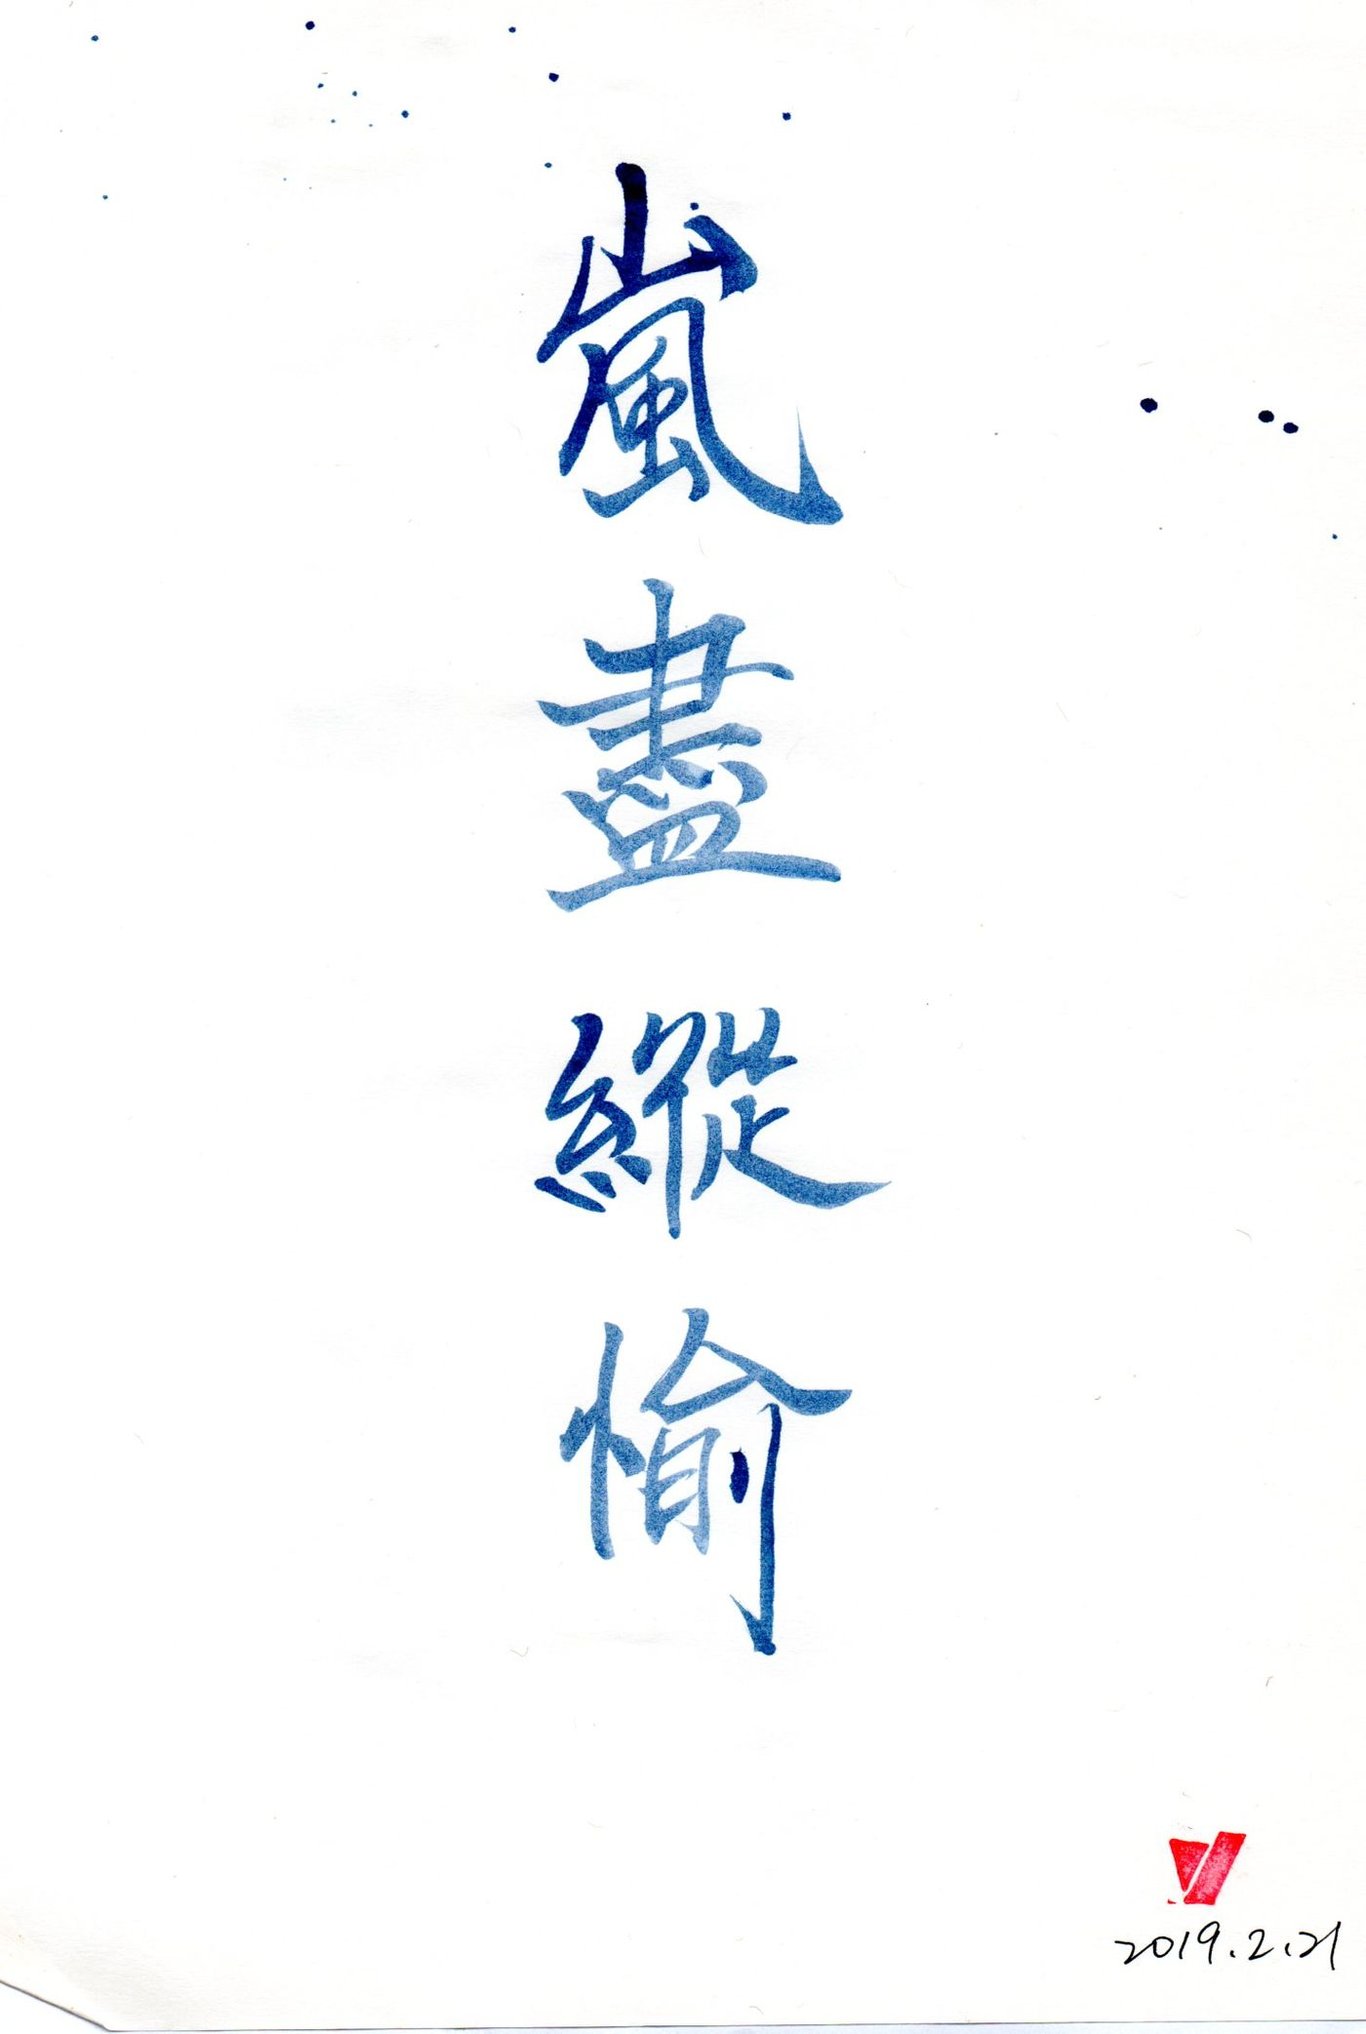 嵐盡縱愉
2019.2.21